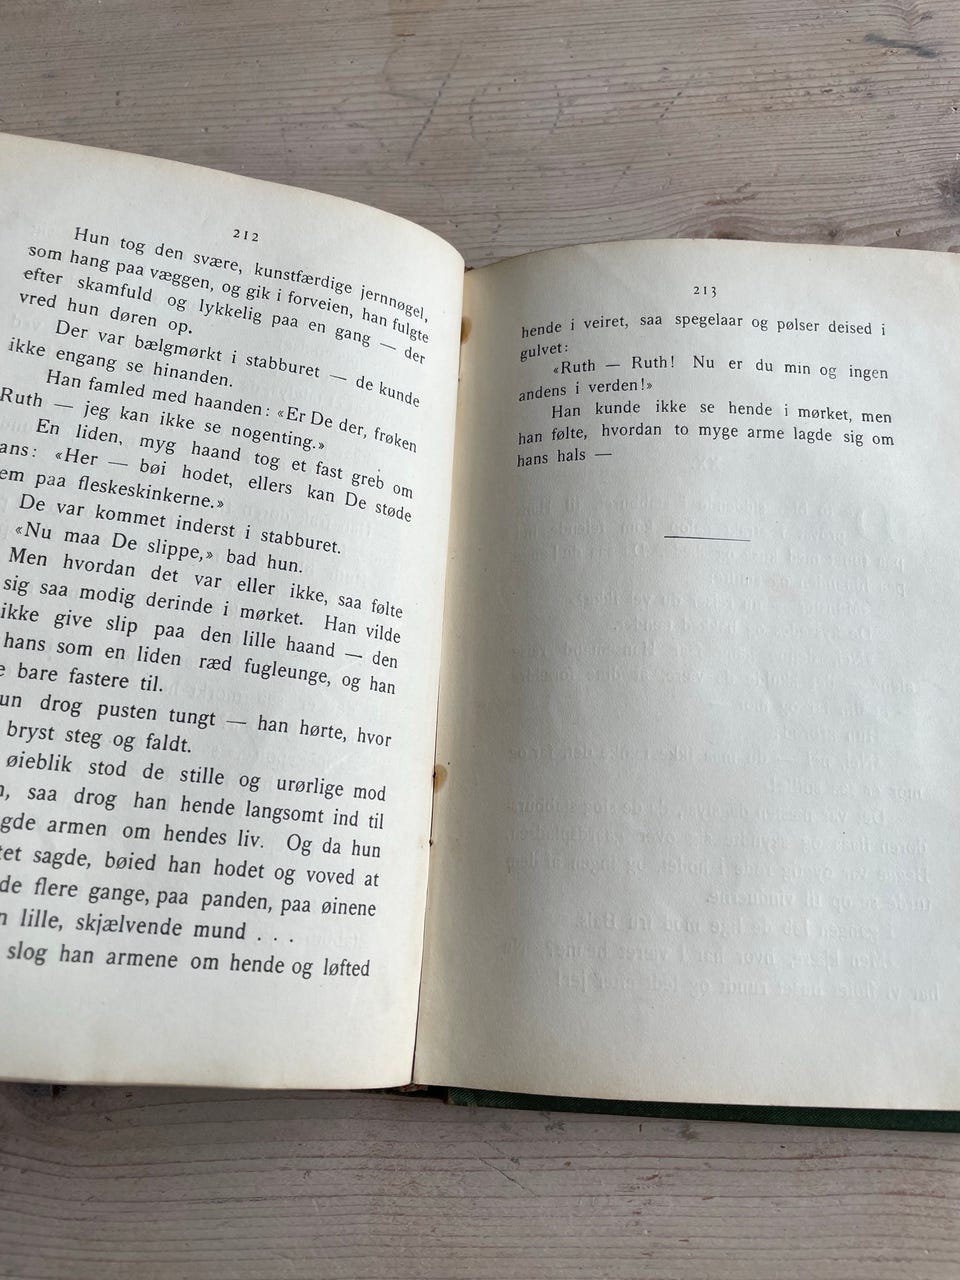 212
Hun tog den svære, kunstfærdige jernnøgel,
som hang paa væggen, og gik i forveien, han fulgte
efter skamfuld og lykkelig paa en gang — der
vred hun døren op.
Der var bælgmørkt i stabburet — de kunde
ikke engang se hinanden.
Han famled med haanden: «Er De der, frøken
Ruth — jeg kan ikke se nogenting.»
En liden, myg haand tog et fast greb om
ans: «Her — bøi hodet, ellers kan De støde
em paa fleskeskinkerne.»
De var kommet inderst i stabburet.
«Nu maa De slippe,» bad hun.
Men hvordan det var eller ikke, saa følte
sig saa modig derinde i mørket. Han vilde
ikke give slip paa den lille haand — den
hans som en liden ræd fugleunge, og han
bare fastere til.
un drog pusten tungt — han hørte, hvor
bryst steg og faldt.
øieblik stod de stille og urørlige mod
saa drog han hende langsomt ind til
gde armen om hendes liv. Og da hun
tet sagde, bøied han hodet og voved at
de flere gange, paa panden, paa øinene
n lille, skjælvende mund . . .
slog han armene om hende og løfted
213
hende i veiret, saa spegelaar og pølser deised i
gulvet:
«Ruth — Ruth! Nu er du min og ingen
andens i verden!»
Han kunde ikke se hende i mørket, men
han følte, hvordan to myge arme lagde sig om
hans hals —